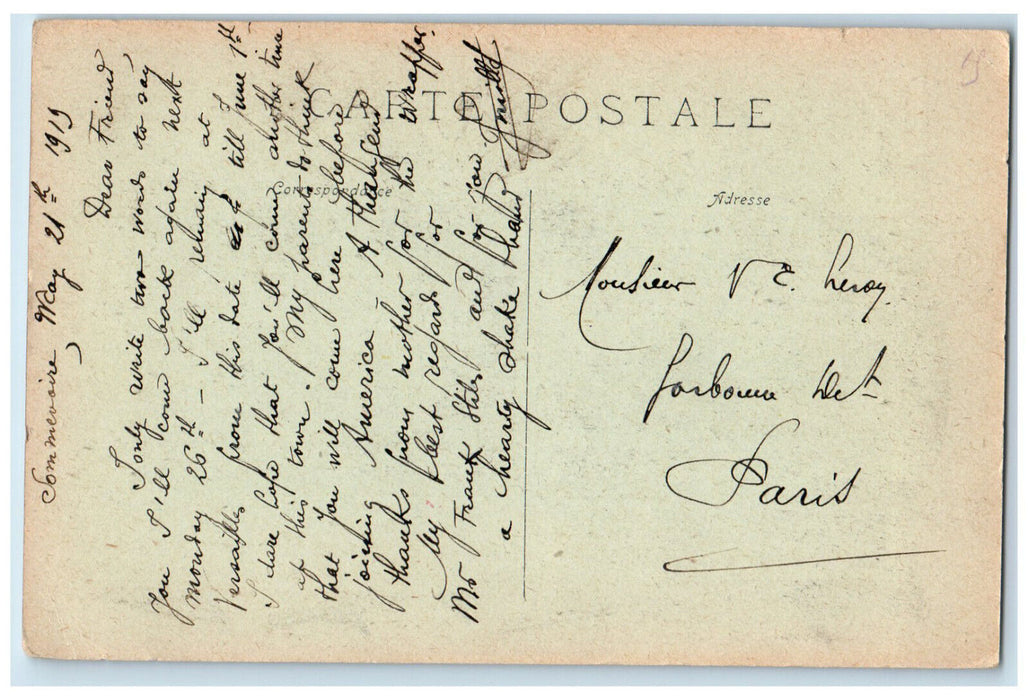 CARTE POSTALE
Correspondance
Adresse
Sommevoire, May 21th 1919
Dear Friend
I only write two words to say
you I'll come back again next
monday 26th – I'll remain at
Versailles from this date till June 1st
I dare hope that you'll come another time
at this town. My parents think
that you will come here before
joining America. A thousand
thanks from mother for the wrapper.
My best regards for
Mr Frank Stiles and for you
a hearty shake hand
Monsieur V E. Leroy
Sorbonne Det
Paris